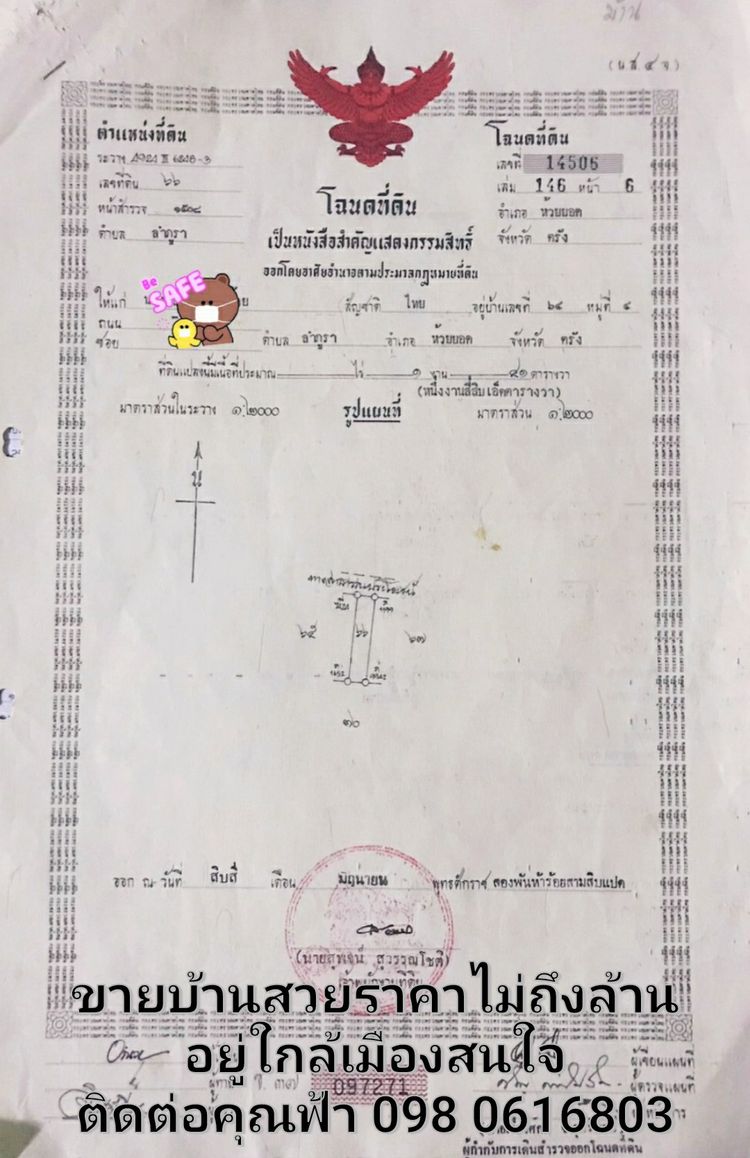 บ้าน
(น.ส.๔ จ.)
ตำแหน่งที่ดิน
โฉนดที่ดิน
ระวาง
เลขที่ 14506
เลขที่ดิน ๖๖
เล่ม 146 หน้า 6
หน้าสำรวจ ๑๕๐๘
โฉนดที่ดิน
อำเภอ ห้วยยอด
ตำบล ลำภูรา
เป็นหนังสือสำคัญแสดงกรรมสิทธิ์
จังหวัด ตรัง
ออกโดยอาศัยอำนาจตามประมวลกฎหมายที่ดิน
Be
SAFE
ให้แก่ สัญชาติ ไทย อยู่บ้านเลขที่ ๖๔ หมู่ที่ ๔
ถนน
ซอย ตำบล ลำภูรา อำเภอ ห้วยยอด จังหวัด ตรัง
ที่ดินแปลงนี้มีเนื้อที่ประมาณ ไร่ ๑ งาน ๔๑ ตารางวา
(หนึ่งงานสี่สิบเอ็ดตารางวา)
มาตราส่วนในระวาง ๑:๒๐๐๐ รูปแผนที่ มาตราส่วน ๑:๒๐๐๐
น
๖๕ ๖๖ ๖๗
๗๐
ออก ณ วันที่ สิบสี่ เดือน มิถุนายน พุทธศักราช สองพันห้าร้อยสามสิบแปด
(นายสุพจน์ สุวรรณโชติ)
เจ้าพนักงานที่ดิน
ขายบ้านสวยราคาไม่ถึงล้าน
อยู่ใกล้เมืองสนใจ
ติดต่อคุณฟ้า 098 0616803
ผู้เขียนแผนที่
ผู้ตรวจแผนที่
097271
ผู้กำกับการเดินสำรวจออกโฉนดที่ดิน